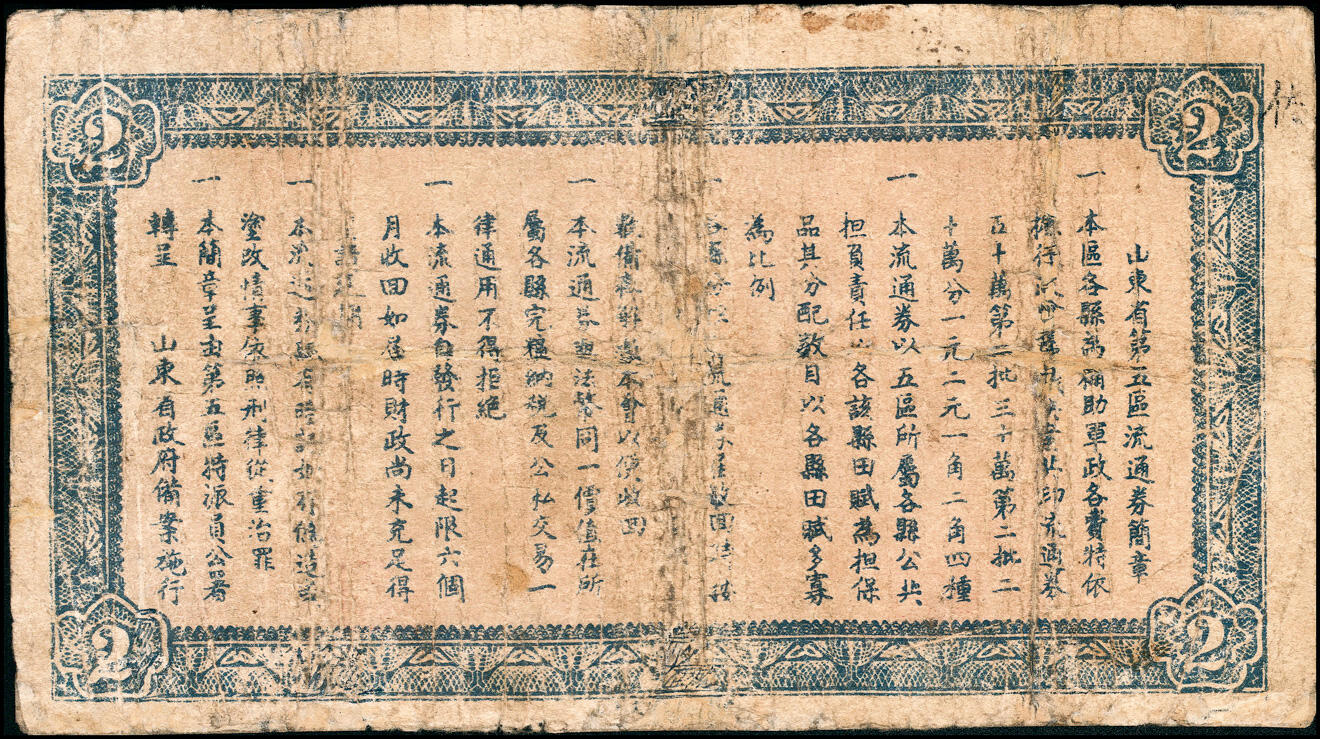 山東省第五區流通券簡章
一
本區各縣為補助軍政各費特依
五十萬第二批三十萬第二批二
十萬分一元二元一角二角四種
一
本流通券以五區所屬各縣公共
担負責任以各該縣田賦為担保
品其分配數目以各縣田賦多寡
為比例
一
本會以便收回
一
本流通券與法幣同一價值在所
屬各縣完糧納稅及公私交易一
律通用不得拒絕
一
本流通券自發行之日起限六個
月收回如屆時財政尚未充足得
一
本流通券
塗改情事依照刑律從重治罪
一
本簡章呈由第五區特派員公署
轉呈 山東省政府備案施行
2
2
2
2